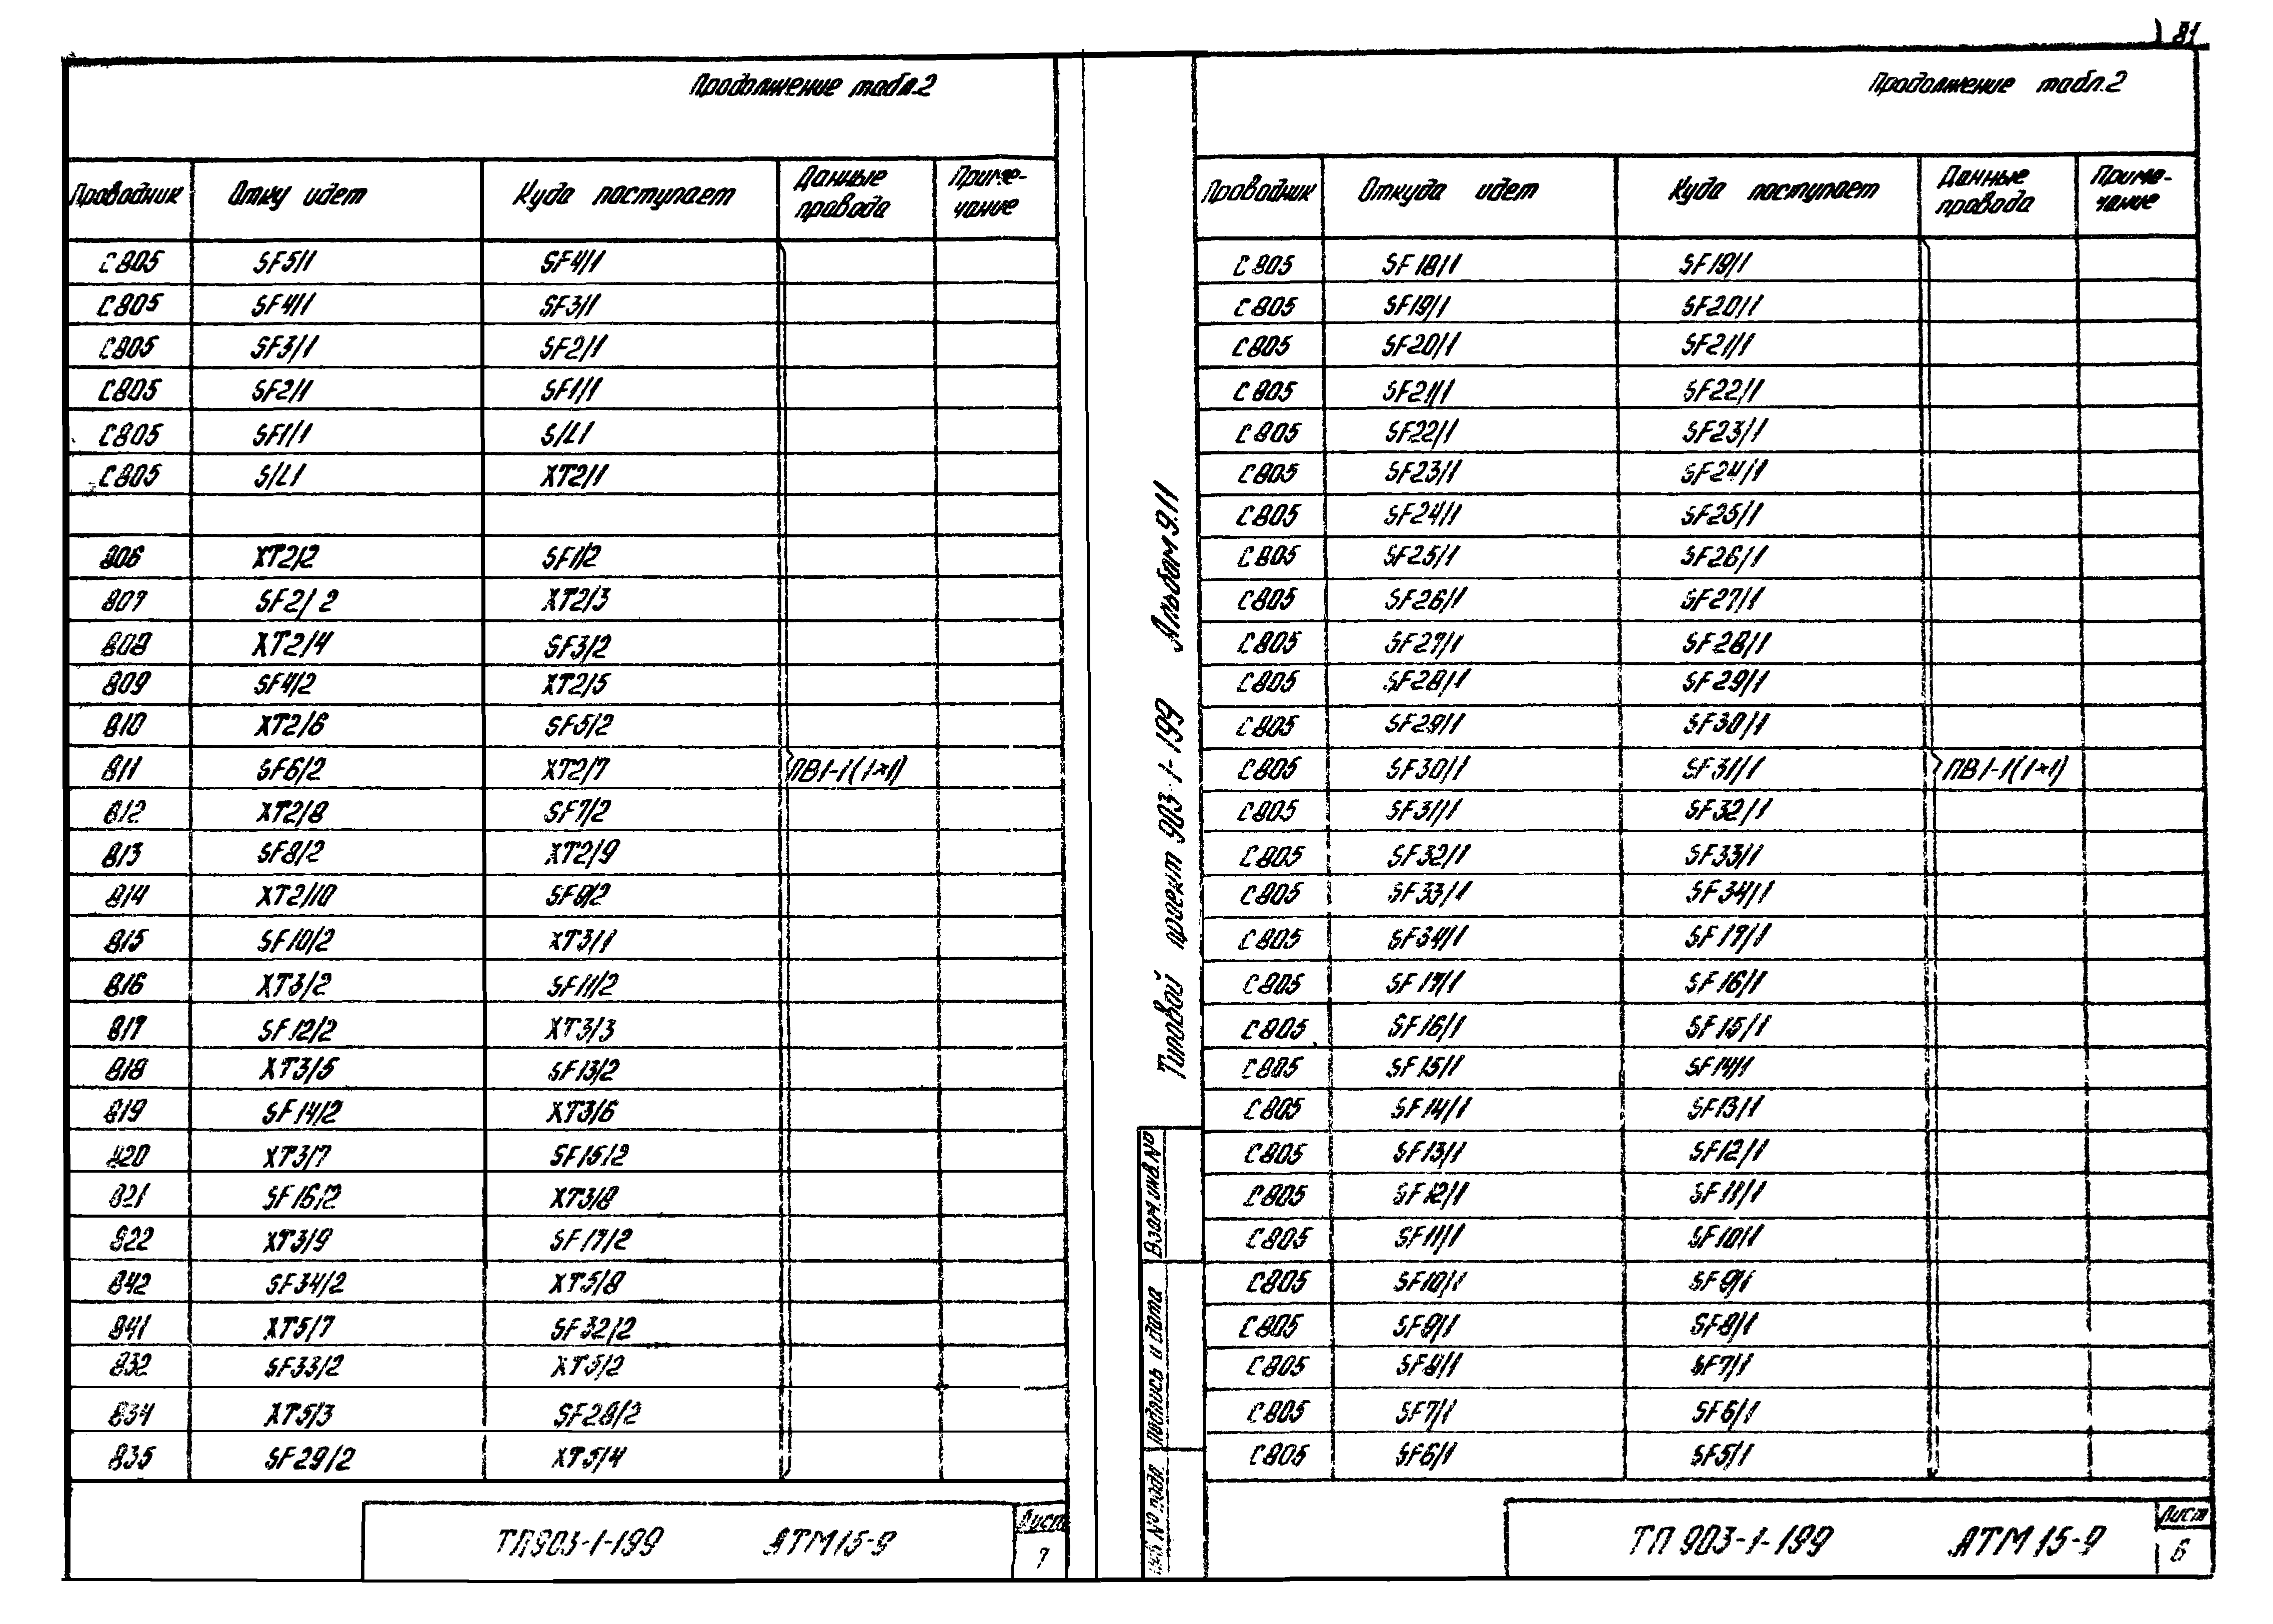 81
Продолжение табл.2
Проводник Отку идет Куда поступает Данные провода Приме-чание
С805 SF5/1 SF4/1
С805 SF4/1 SF3/1
С805 SF3/1 SF2/1
С805 SF2/1 SF1/1
С805 SF1/1 S/L1
С805 S/L1 XT2/1
806 XT2/2 SF1/2
807 SF2/2 XT2/3
808 XT2/4 SF3/2
809 SF4/2 XT2/5
810 XT2/6 SF5/2
811 SF6/2 XT2/7 ПВ1-1(1×1)
812 XT2/8 SF7/2
813 SF8/2 XT2/9
814 XT2/10 SF9/2
815 SF10/2 XT3/1
816 XT3/2 SF11/2
817 SF12/2 XT3/3
818 XT3/5 SF13/2
819 SF14/2 XT3/6
820 XT3/7 SF15/2
821 SF16/2 XT3/8
822 XT3/9 SF17/2
842 SF34/2 XT5/8
841 XT5/7 SF32/2
832 SF33/2 XT5/2
834 XT5/3 SF28/2
835 SF29/2 XT5/4
ТП903-1-199 АТМ15-9
Лист
7
Типовой проект 903-1-199 Альбом 9.11
Взам.инв.№
Подпись и дата
Инв.№ подл.
Продолжение табл.2
Проводник Откуда идет Куда поступает Данные провода Приме-чание
С805 SF18/1 SF19/1
С805 SF19/1 SF20/1
С805 SF20/1 SF21/1
С805 SF21/1 SF22/1
С805 SF22/1 SF23/1
С805 SF23/1 SF24/1
С805 SF24/1 SF25/1
С805 SF25/1 SF26/1
С805 SF26/1 SF27/1
С805 SF27/1 SF28/1
С805 SF28/1 SF29/1
С805 SF29/1 SF30/1
С805 SF30/1 SF31/1 ПВ1-1(1×1)
С805 SF31/1 SF32/1
С805 SF32/1 SF33/1
С805 SF33/1 SF34/1
С805 SF34/1 SF17/1
С805 SF17/1 SF16/1
С805 SF16/1 SF15/1
С805 SF15/1 SF14/1
С805 SF14/1 SF13/1
С805 SF13/1 SF12/1
С805 SF12/1 SF11/1
С805 SF11/1 SF10/1
С805 SF10/1 SF9/1
С805 SF9/1 SF8/1
С805 SF8/1 SF7/1
С805 SF7/1 SF6/1
С805 SF6/1 SF5/1
ТП 903-1-199 АТМ15-9
Лист
6